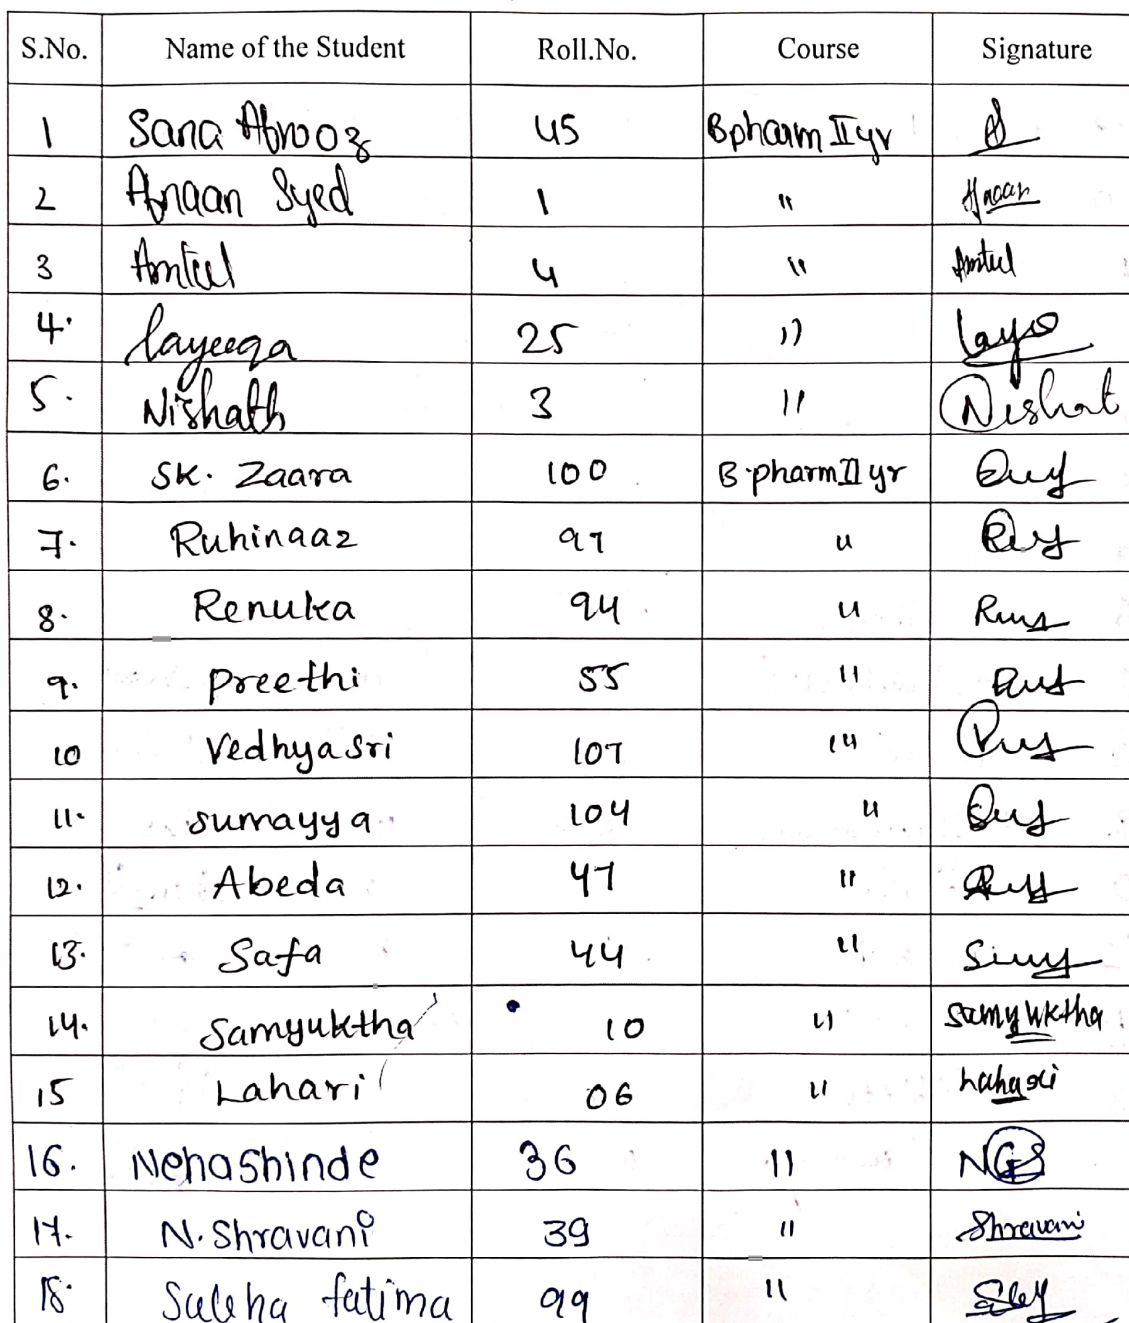 S.No. Name of the Student Roll.No. Course Signature
1 Sana Afrooz 45 Bpharm II yr
2 Afnaan Syed 1 "
3 Amtul 4 " Amtul
4. layeeqa 25 " Laya
5. Nishath 3 " Nishat
6. SK. Zaara 100 B.pharm II yr
7. Ruhinaaz 97 "
8. Renuka 94 "
9. preethi 55 "
10 Vedhyasri 107 "
11. sumayya 104 "
12. Abeda 47 "
13. Safa 44 "
14. Samyuktha 10 " Samyuktha
15 Lahari 06 " Lahari
16. Nehashinde 36 " NGS
17. N. Shravani 39 " Shravani
18. Saleha fatima 99 "